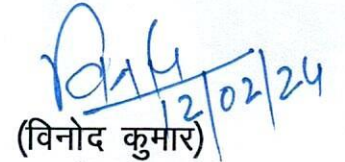 12/02/24
(विनोद कुमार)